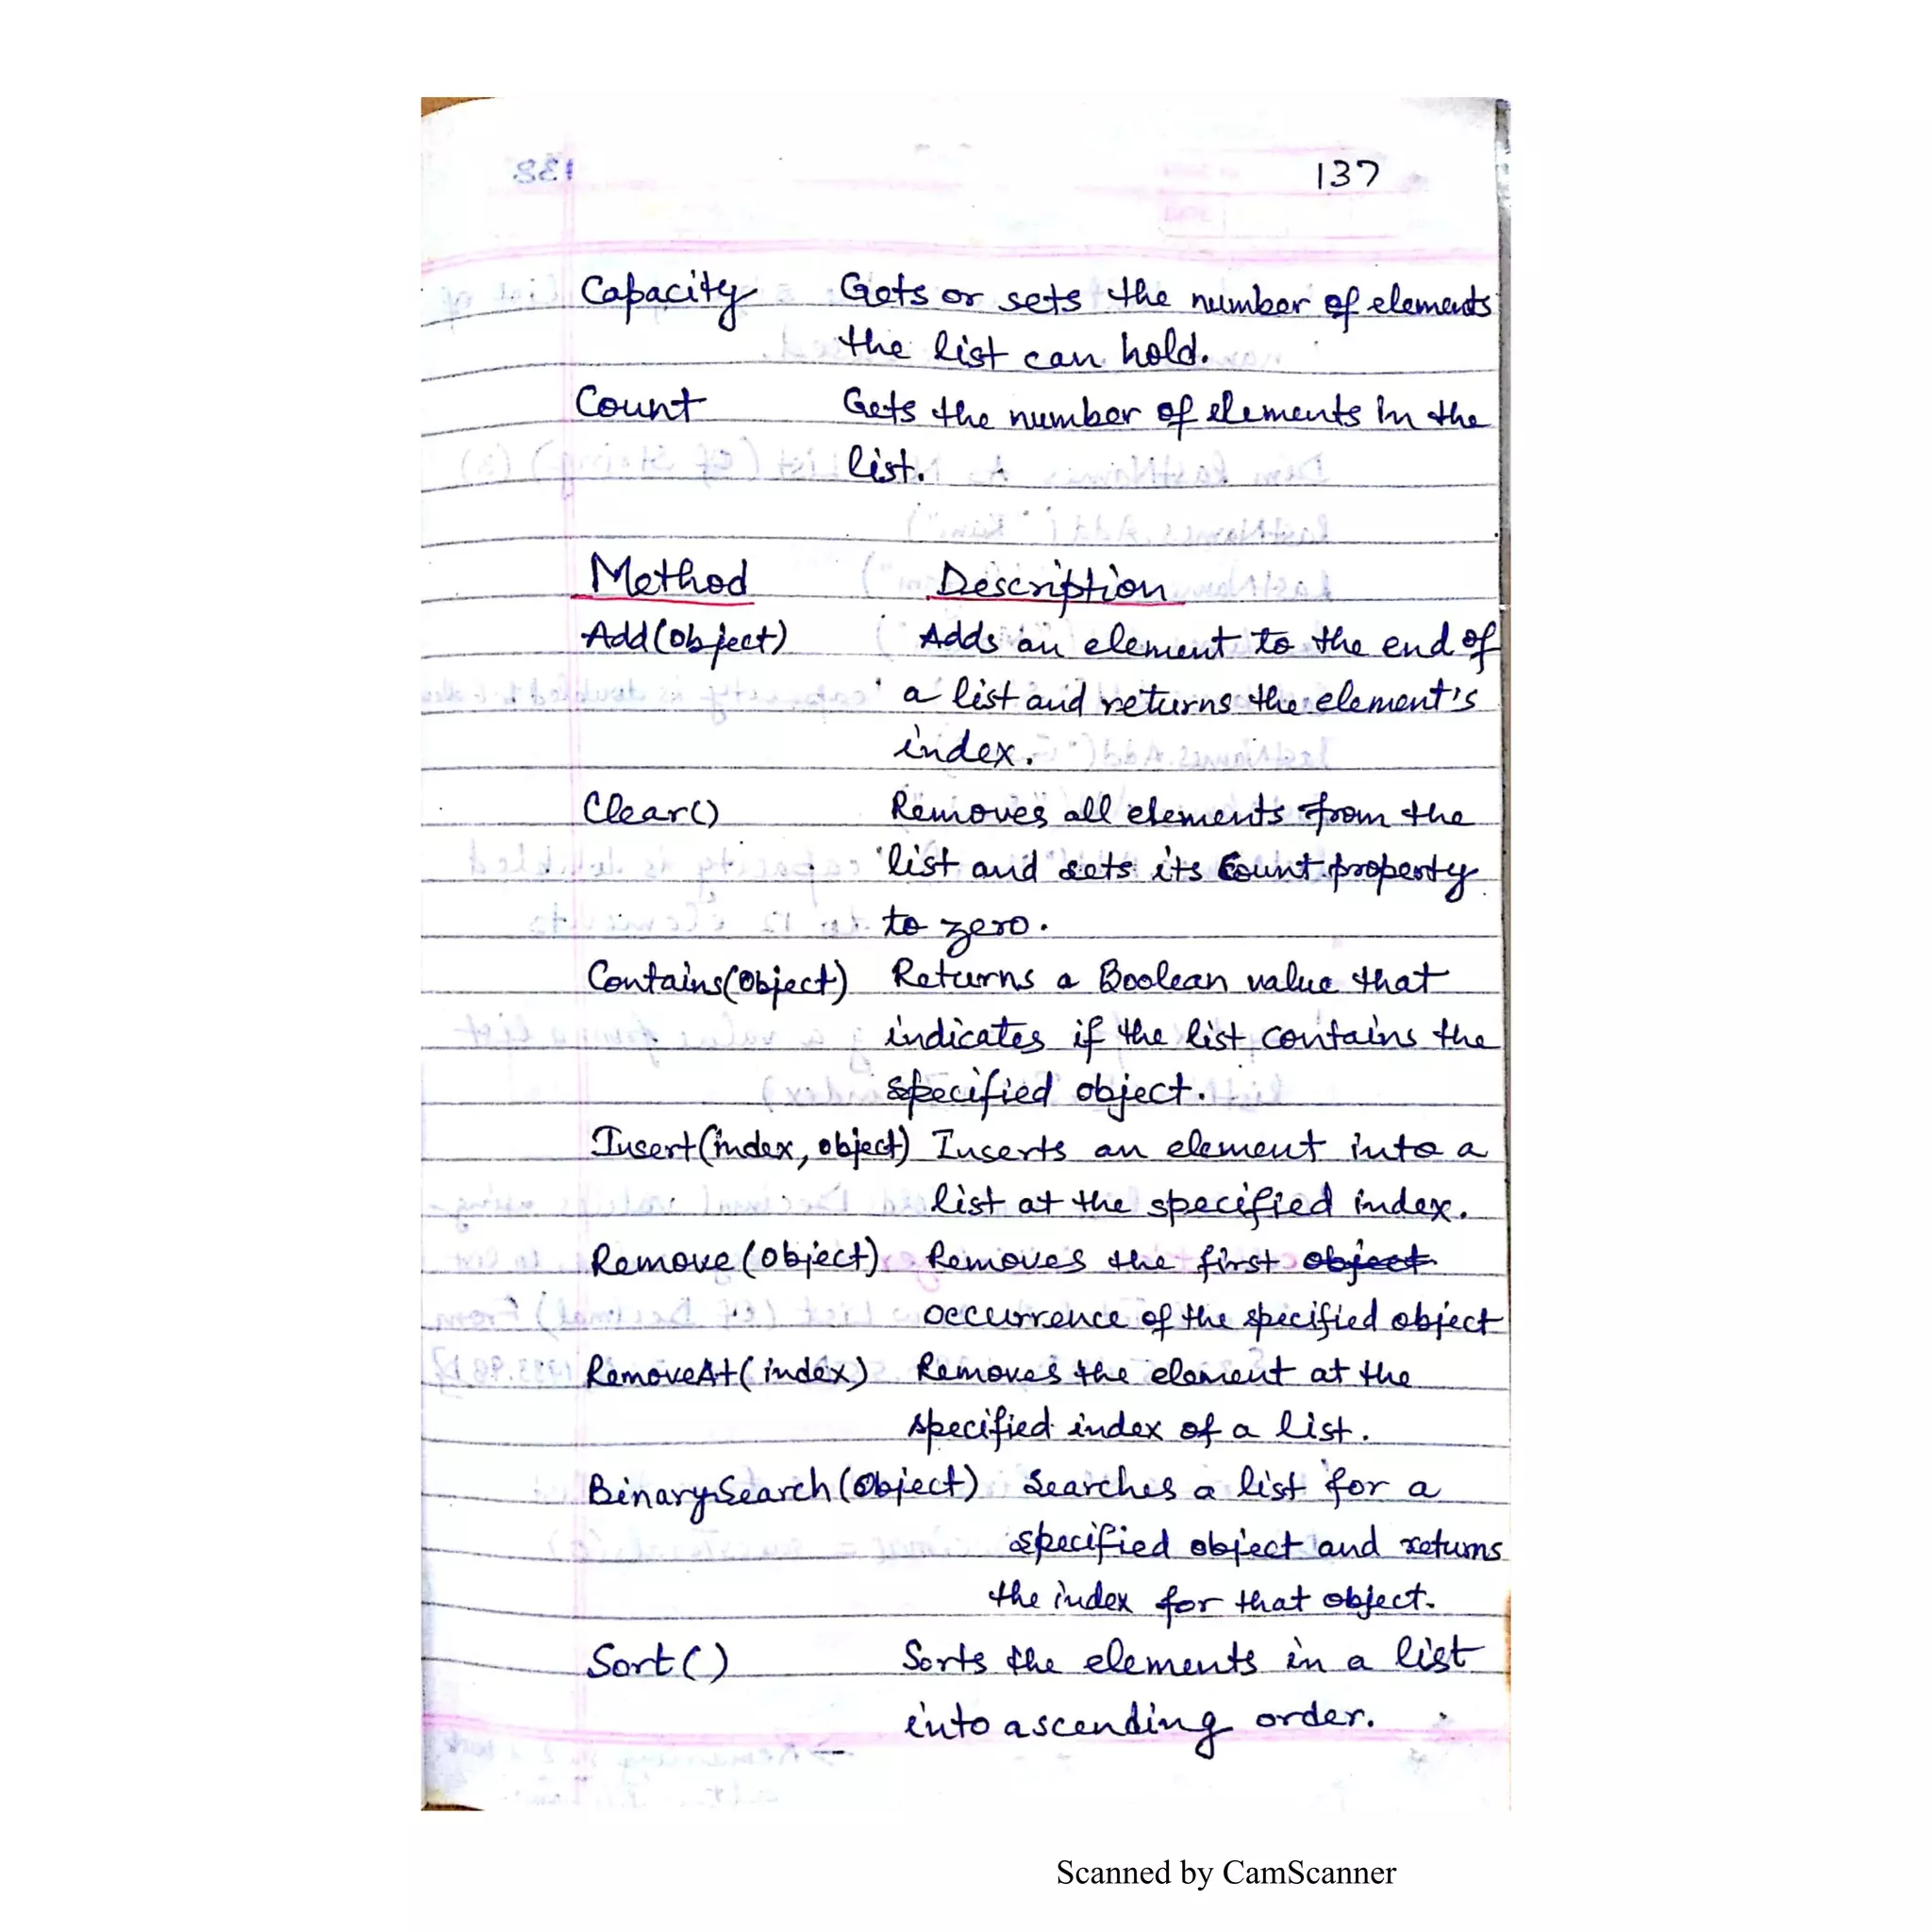 137
Capacity Gets or sets the number of elements
the list can hold.
Count Gets the number of elements in the
list.
Method Description
Add(object) Adds an element to the end of
a list and returns the element's
index.
Clear() Removes all elements from the
list and sets its Count property
to zero.
Contains(object) Returns a Boolean value that
indicates if the list contains the
specified object.
Insert(index, object) Inserts an element into a
list at the specified index.
Remove(object) Removes the first object
occurrence of the specified object
RemoveAt(index) Removes the element at the
specified index of a list.
BinarySearch(Object) Searches a list for a
specified object and returns
the index for that object.
Sort() Sorts the elements in a list
into ascending order.
Scanned by CamScanner